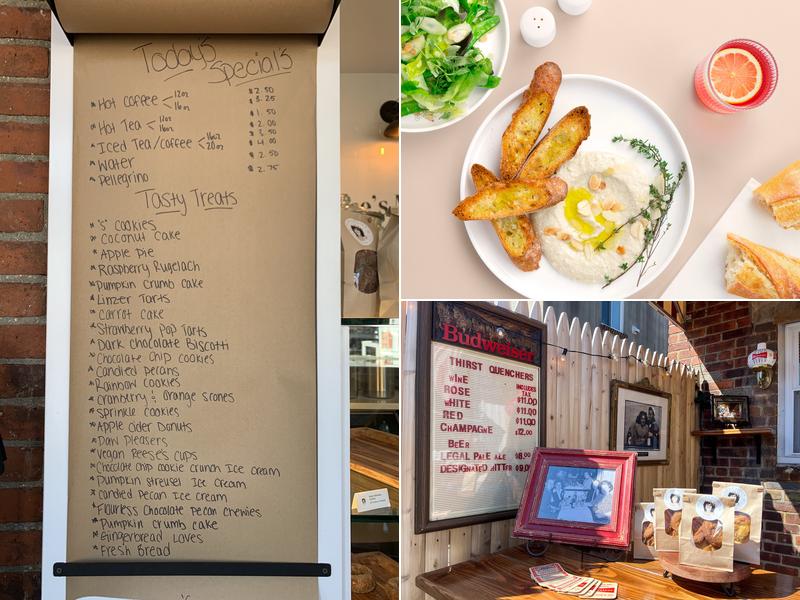 Today's
Specials
* Hot Coffee < 12oz $2.50
16oz $3.25
* Hot Tea < 12oz $1.50
16oz $2.00
* Iced Tea/Coffee < 16oz $3.50
20oz $4.00
* Water $2.50
* Pellegrino $2.75
Tasty Treats
* "S" Cookies
* Coconut Cake
* Apple Pie
* Raspberry Rugelach
* Pumpkin Crumb Cake
* Linzer Tarts
* Carrot Cake
* Strawberry Pop Tarts
* Dark Chocolate Biscotti
* Chocolate Chip Cookies
* Candied Pecans
* Rainbow Cookies
* Cranberry & Orange Scones
* Sprinkle Cookies
* Apple Cider Donuts
* Paw Pleasers
* Vegan Reese's Cups
* Chocolate chip cookie crunch Ice cream
* Pumpkin Streusel Ice Cream
* Candied Pecan Ice cream
* Flourless Chocolate Pecan Chewies
* Pumpkin Crumb cake
* Gingerbread Loaves
* Fresh Bread
Budweiser
THIRST QUENCHERS
WINE INCLUDES TAX
ROSE $11.00
WHITE $11.00
RED $11.00
CHAMPAGNE $12.00
BEER
LEGAL PALE ALE $8.00
DESIGNATED HITTER $9.0